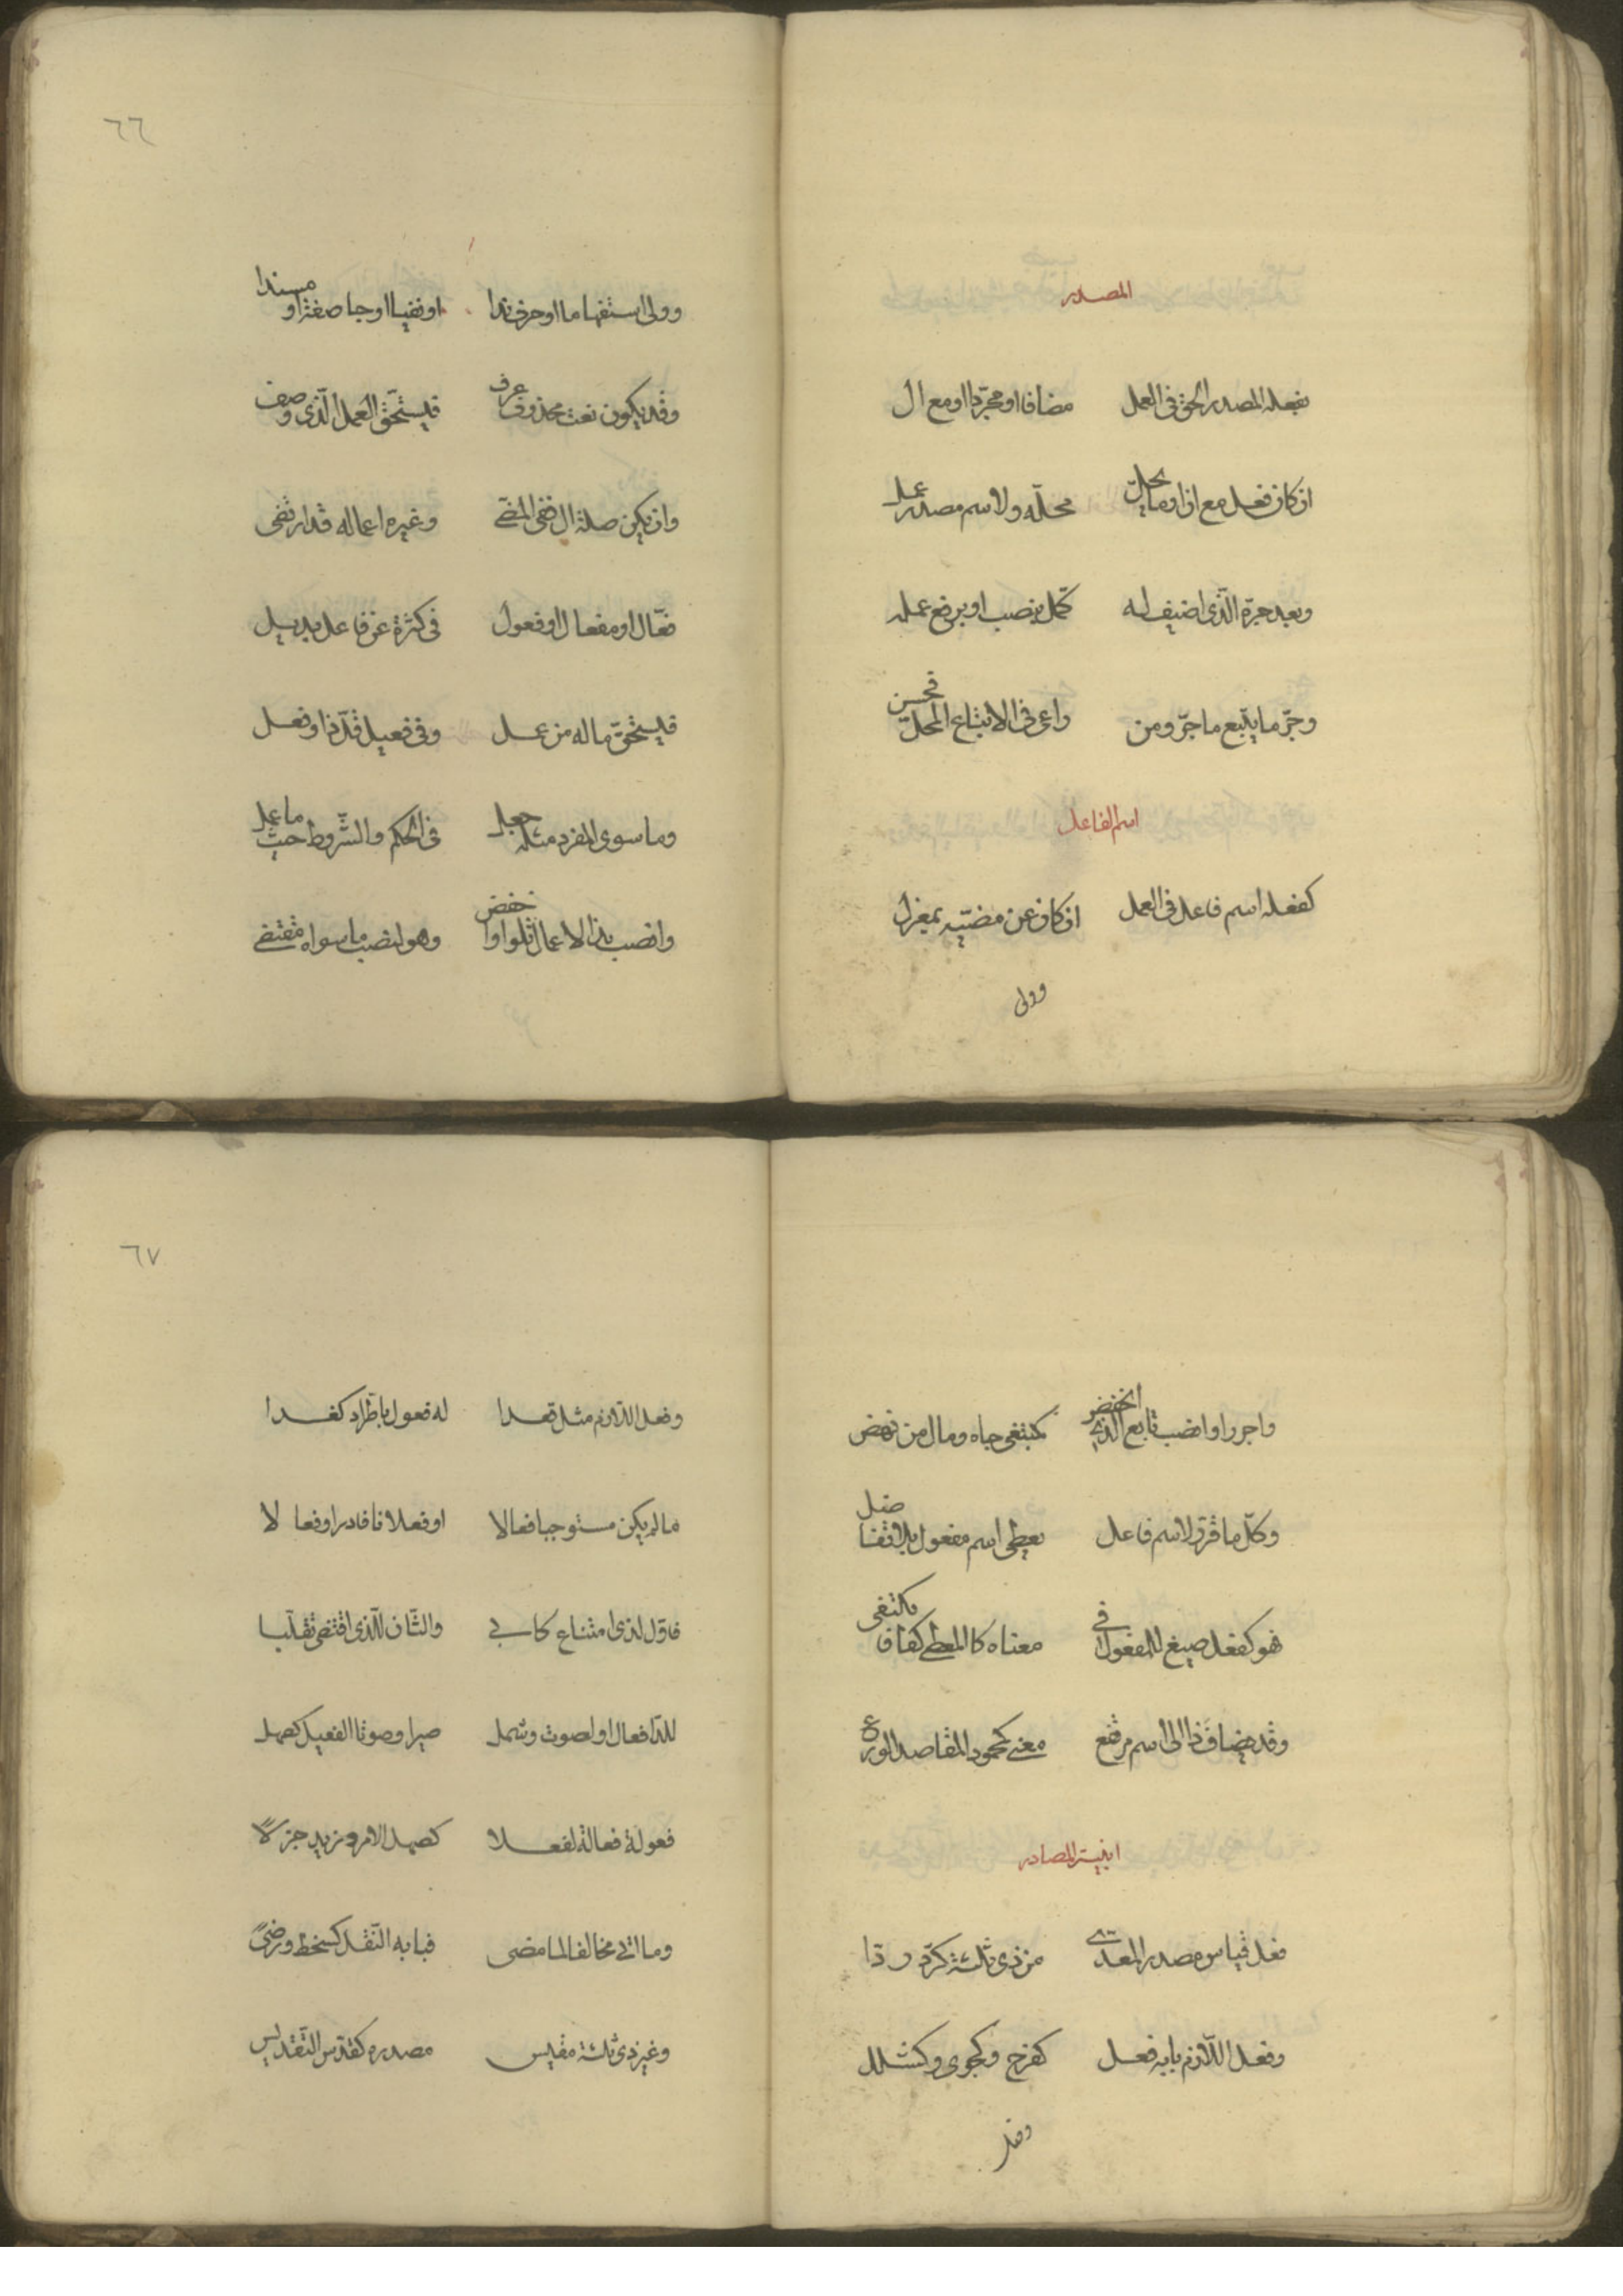 المصدر
بفعله المصدر الحق فى العمل مضافا او مجرّدا او مع ال
ان كان فعل مع ان او ما يحلّ محلّه ولاسم مصدر عمل
وبعد جرّه الّذى اضيف له كمّل بنصب او برفع عمله
وجرّ ما يتبع ما جرّ ومن راعى فى الاتباع المحلّ فحسن
اسم الفاعل
كفعله اسم فاعل فى العمل ان كان عن مضيّه بمعزل
وولى
٦٦
وولى استفهاما او حرف ندا او نفيا او جا صفة او مسندا
وقد يكون نعت محذوف عرف فيستحقّ العمل الّذى وصف
وان يكن صلة ال ففى المضى وغيره اعماله قد ارتضى
فعّال او مفعال او فعول فى كثرة عن فاعل بديل
فيستحقّ ماله من عمل وفى فعيل قلّ ذا وفعل
وما سوى المفرد مثله جعل فى الحكم والشّروط حيث ما عمل
وانصب بذا الاعمال تلوا واخفض وهو لنصب ما سواه مقتضى
واجرر او انصب تابع الّذى انخفض كمبتغى جاه ومال من نهض
وكلّ ما قرّر لاسم فاعل يعطى اسم مفعول بلا تفاضل
فهو كفعل صيغ للمفعول فى معناه كالمعطى كفافا يكتفى
وقد يضاف ذا الى اسم مرتفع معنى كمحمود المقاصد الورع
ابنية المصادر
فعل قياس مصدر المعدّى من ذى ثلثة كردّ ردّا
وفعل اللّازم بابه فعل كفرح وكجوى وكشلل
وفعل
٦٧
وفعل اللّازم مثل قعدا له فعول باطّراد كغدا
ما لم يكن مستوجبا فعالا او فعلانا فادر او فعالا
فاوّل لذى امتناع كابى والثّان للّذى اقتضى تقلّبا
للدّا فعال او لصوت وشمل سيرا وصوتا الفعيل كصهل
فعولة فعالة لفعلا كسهل الامر وزيد جزلا
وما اتى مخالفا لما مضى فبابه النّقل كسخط ورضىً
وغير ذى ثلثة مقيس مصدره كقدّس التّقديس